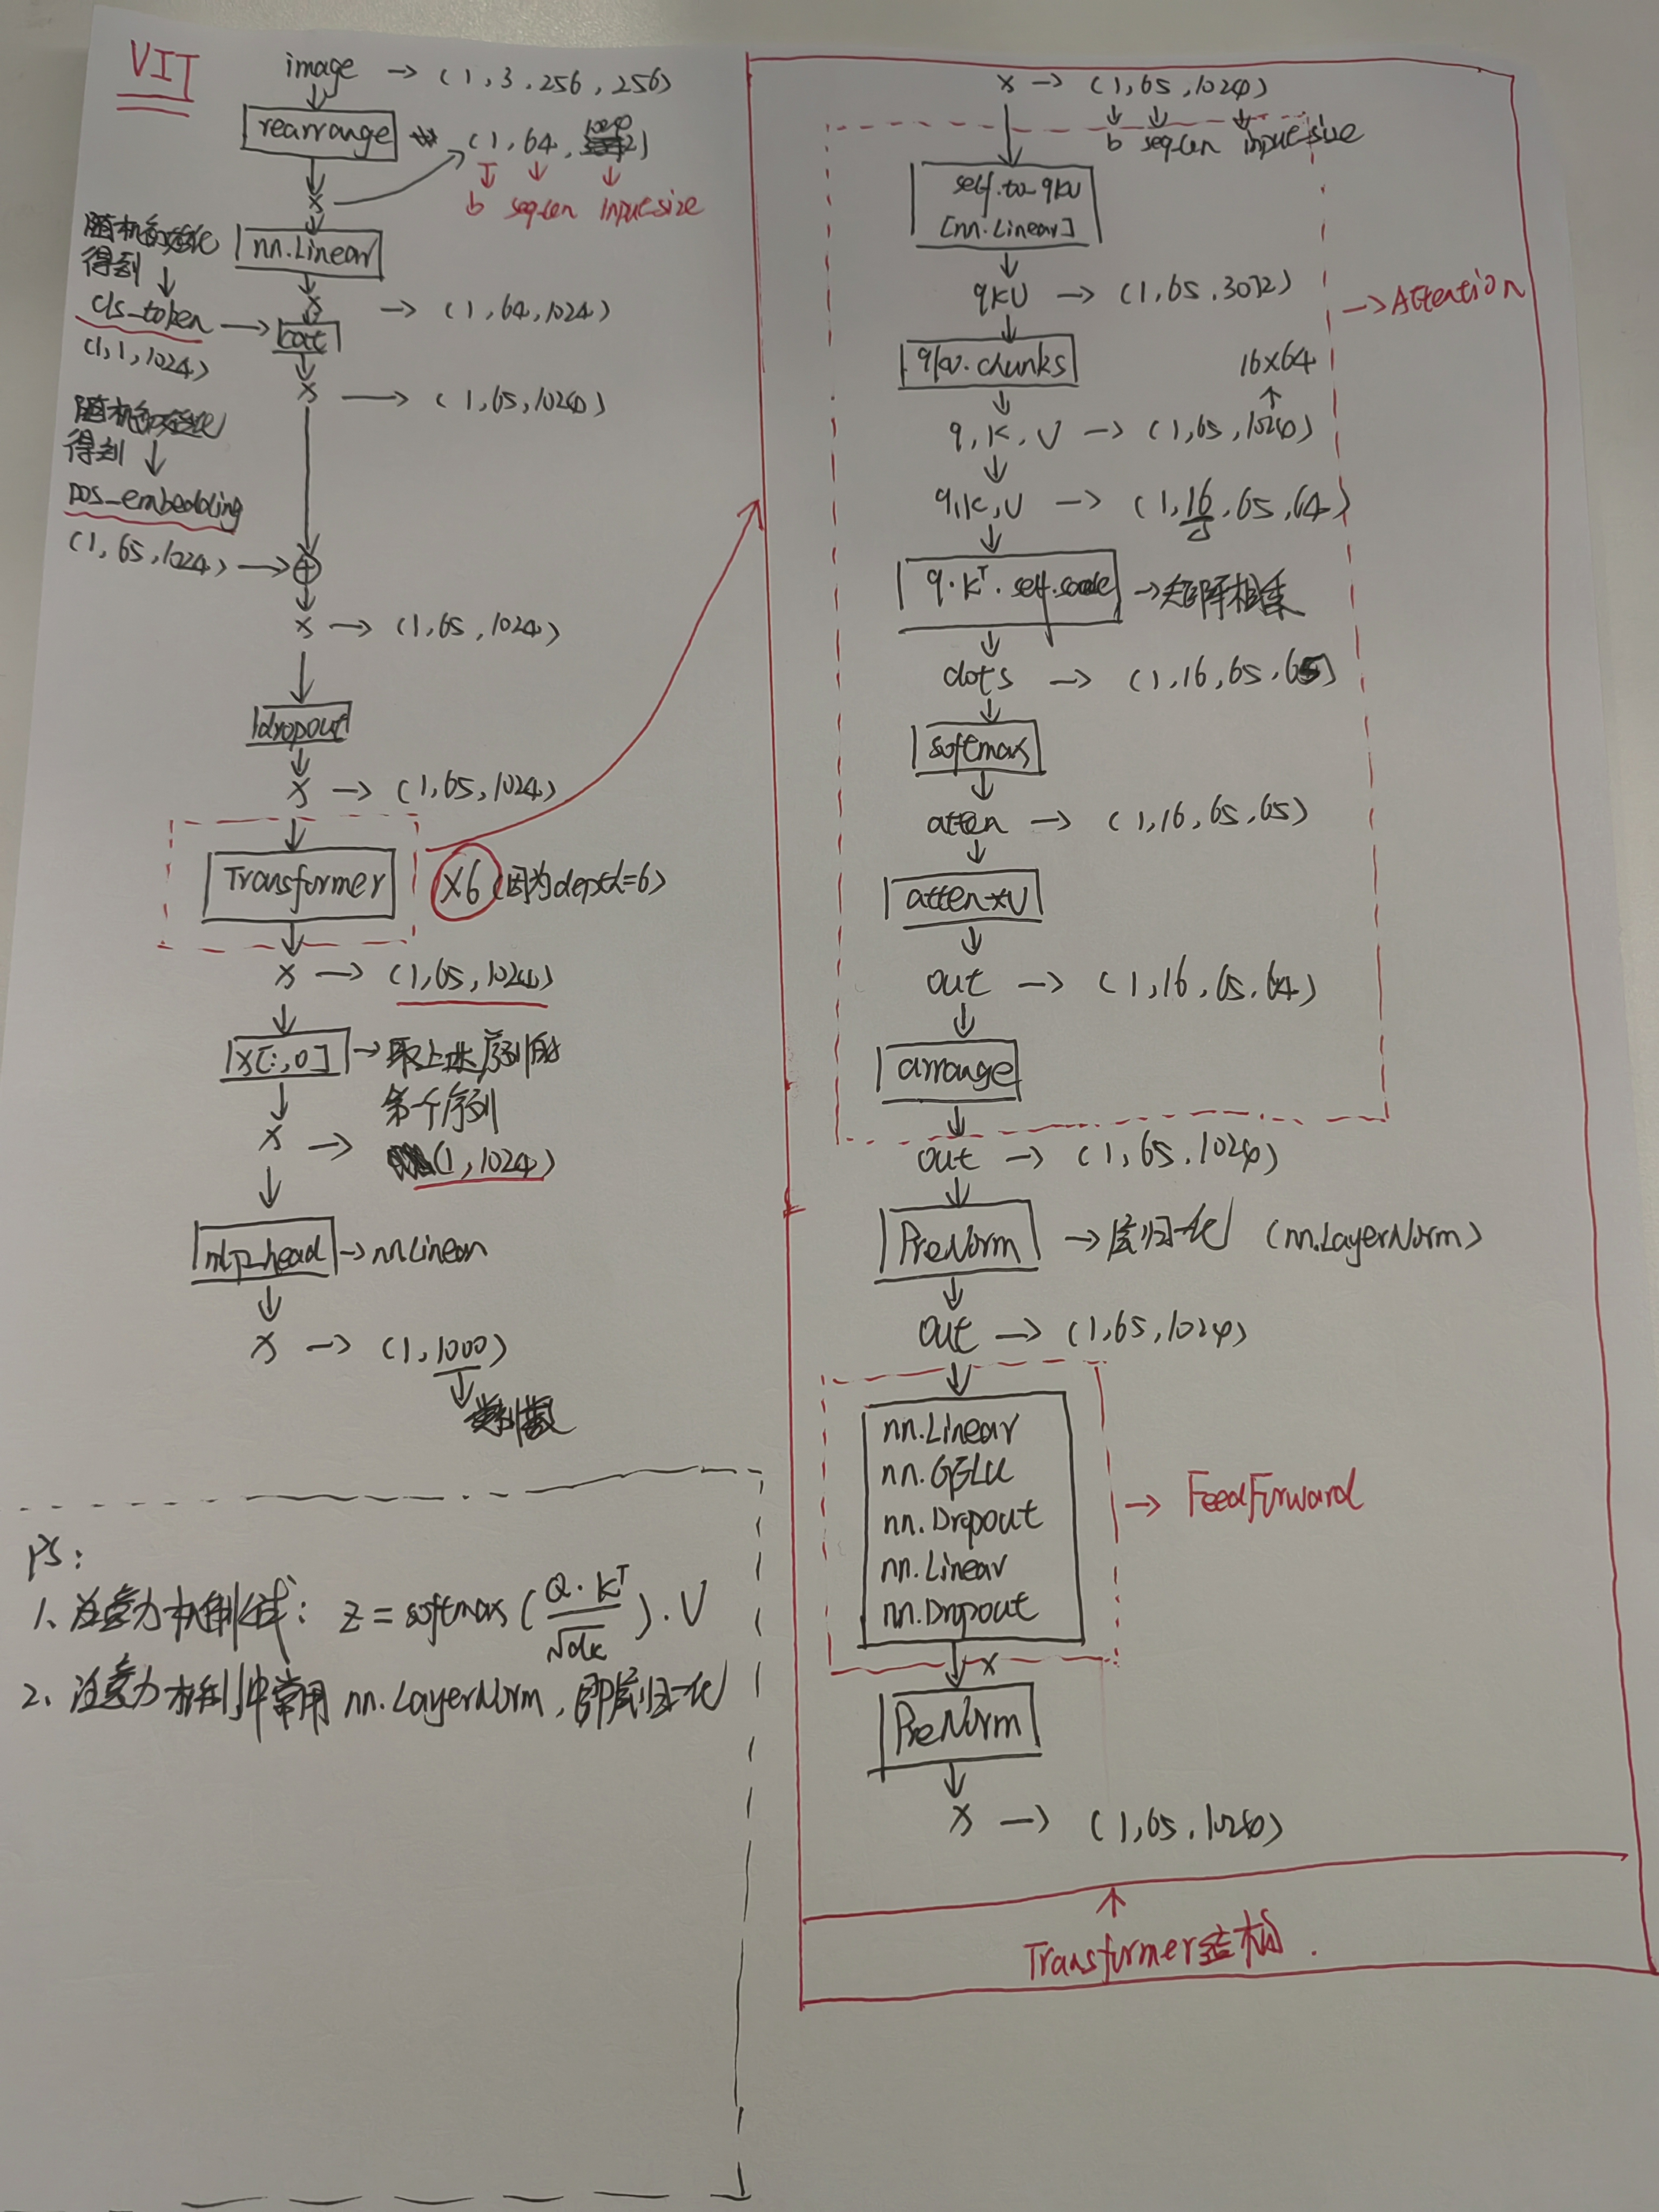 VIT
image → (1, 3, 256, 256)
rearrange
(1, 64,
b seq-len inputsize
x
随机初始化
得到
nn.Linear
x → (1, 64, 1024)
cls_token → cat
(1, 1, 1024)
x → (1, 65, 1024)
随机初始化
得到
pos_embedding
(1, 65, 1024) → ⊕
x → (1, 65, 1024)
dropout
x → (1, 65, 1024)
Transformer X6 (因为depth=6)
x → (1, 65, 1024)
x[:, 0] → 取上述序列的
第一个序列
x → (1, 1024)
mlp_head → nn.Linear
x → (1, 1000)
类别数
PS:
1、注意力机制公式: z = softmax(Q·K^T/√dk)·V
2、注意力机制中常用 nn.LayerNorm, 即层归一化
x → (1, 65, 1024)
b seq-len inputsize
self.to_qkv
[nn.Linear]
qkv → (1, 65, 3072)
→ Attention
qkv.chunks
16x64
q, k, v → (1, 65, 1024)
q, k, v → (1, 16, 65, 64)
q·k^T·self.scale → 矩阵相乘
dots → (1, 16, 65, 65)
softmax
atten → (1, 16, 65, 65)
atten*v
out → (1, 16, 65, 64)
arrange
out → (1, 65, 1024)
PreNorm → 层归一化 (nn.LayerNorm)
out → (1, 65, 1024)
nn.Linear
nn.GELU
nn.Dropout
nn.Linear
nn.Dropout
→ FeedForward
x
PreNorm
x → (1, 65, 1024)
Transformer结构.